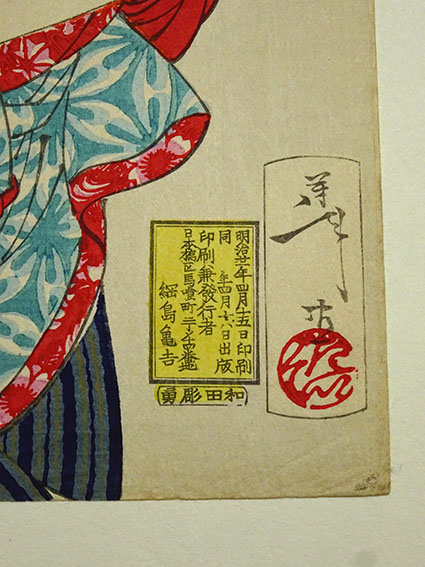 芳年
明治廿一年四月十五日印刷
同 年四月十六日出版
印刷兼發行者
日本橋区馬喰町二丁目十四番地
綱島亀吉
和田彫勇